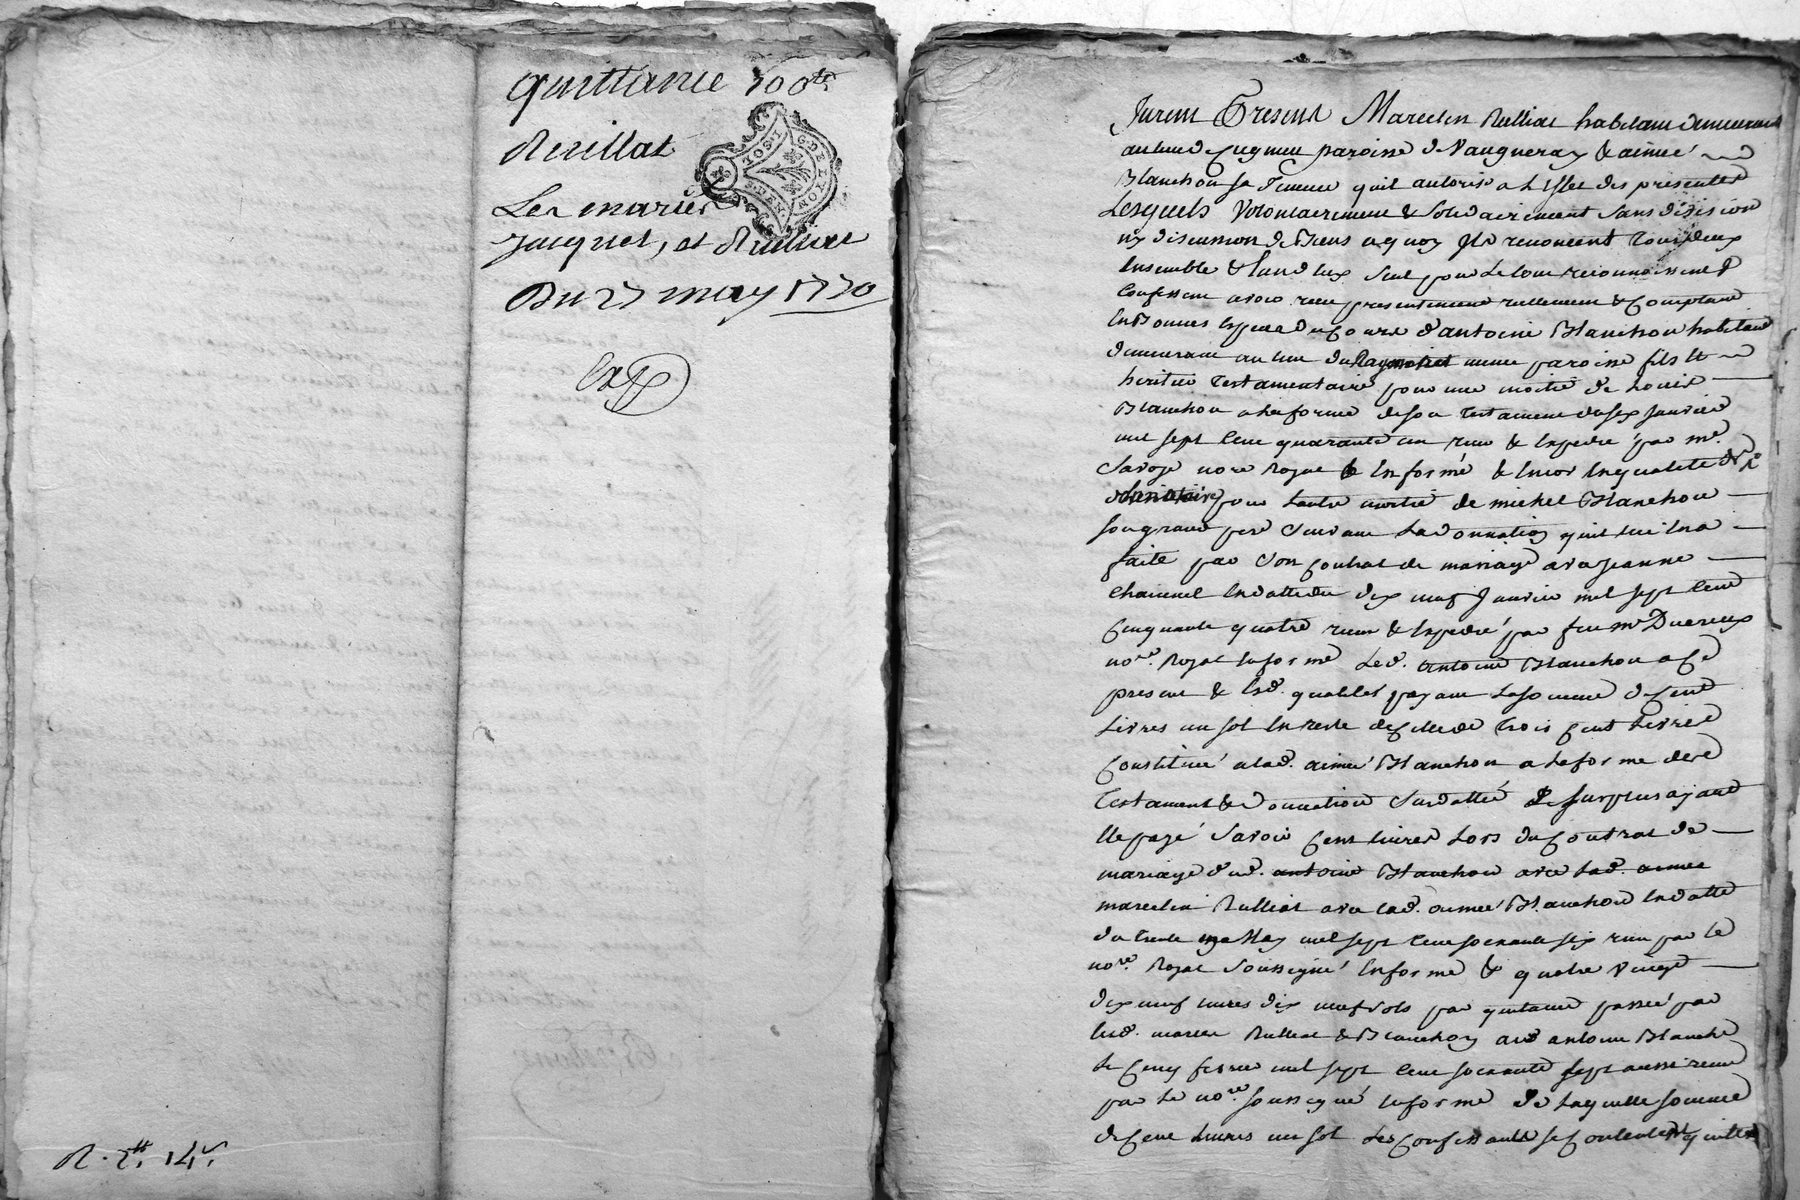 quittance 100ᵗᵗ
Les mariés
Jacquet, et
Du 27 may 1770
GDE LYON
R. 2ᵗᵗ. 14ˢ.
Furent Presens Marcelin Rulliat habitant demeurant
au lieu de paroisse de Vaugneray & aimée
Blanchon sa femme quil autorise a Leffet des presentes
Lesquels Volontairement & Solidairement sans division
ny discussion de Biens a quoy Ils renoncent tous deux
Ensemble & Lun deux seul pour Le tout reconnaissent &
Confessent avoir reçu presentement reellement & Comptant
En Bonnes Especes du Cours d'antoine Blanchon habitant
demeurant au lieu du même paroisse fils &
heritier Testamentaire pour une moitié de Louis
Blanchon a la forme de son Testament du six Janvier
mil sept Cent quarante un reçu & Expedié par mᵉ.
Savoye noʳᵉ Royal En forme & Encor En qualité de
donataire pour Lautre moitié de michel Blanchon
son grand pere Suivant La donnation quil lui En a
faite par Son Contrat de mariage avec Jeanne
En datte du dix neuf Janvier mil sept Cent
Cinquante quatre reçu & Expedié par feu mᵉ
noʳᵉ. Royal En forme Led. antoine Blanchon a Ce
present & Esd. qualités payant La somme de Cent
Livres un sol En reste de Celle de trois Cent Livres
Constituée a lad. aimée Blanchon a La forme desd
Testament & donnation Susdattés Le surplus ayant
Eté payé Savoir Cent livres Lors du Contrat de
mariage dud. antoine Blanchon avec Lad. aimée
marcelin Rulliat avec lad. aimée Blanchon En datte
du trente may mil sept Cent soixante six reçu par Le
noʳᵉ. Royal Soussigné En forme & quatre Vingt
dix neuf livres dix neuf sols par quitance passée par
Lesd. Rulliat & Blanchon aud antoine Blancho
Le Cinq fevrier mil sept Cent soixante sept aussi reçue
par Le noʳᵉ. soussigné En forme de Laquelle somme
de Cent Livres un sol Les Confessants se Contentent quittent